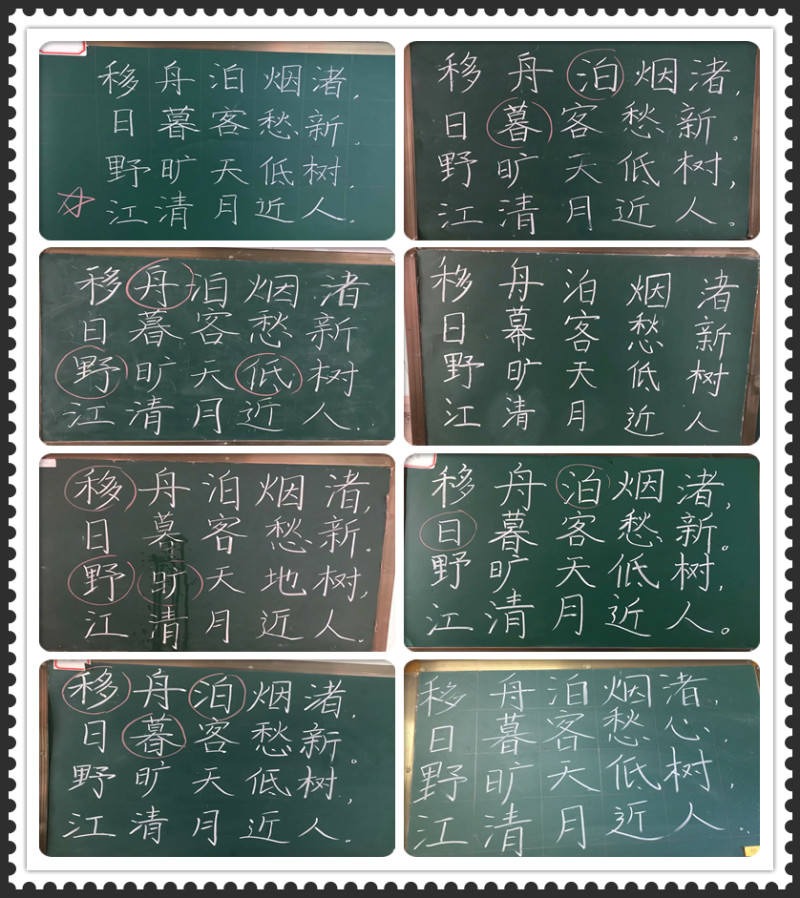 移舟泊烟渚，
日暮客愁新。
野旷天低树，
江清月近人。
移舟泊烟渚，
日暮客愁新。
野旷天低树，
江清月近人。
移舟泊烟渚
日暮客愁新
野旷天低树
江清月近人..
移舟泊烟渚
日幕客愁新
野旷天低树
江清月近人
移舟泊烟渚，
日墓客愁新。
野旷天地树，
江清月近人.
移舟泊烟渚，
日暮客愁新。
野旷天低树，
江清月近人。
移舟泊烟渚，
日暮客愁新。
野旷天低树，
江清月近人.
移舟泊烟渚，
日暮客愁心..
野旷天低树，
江清月近人..